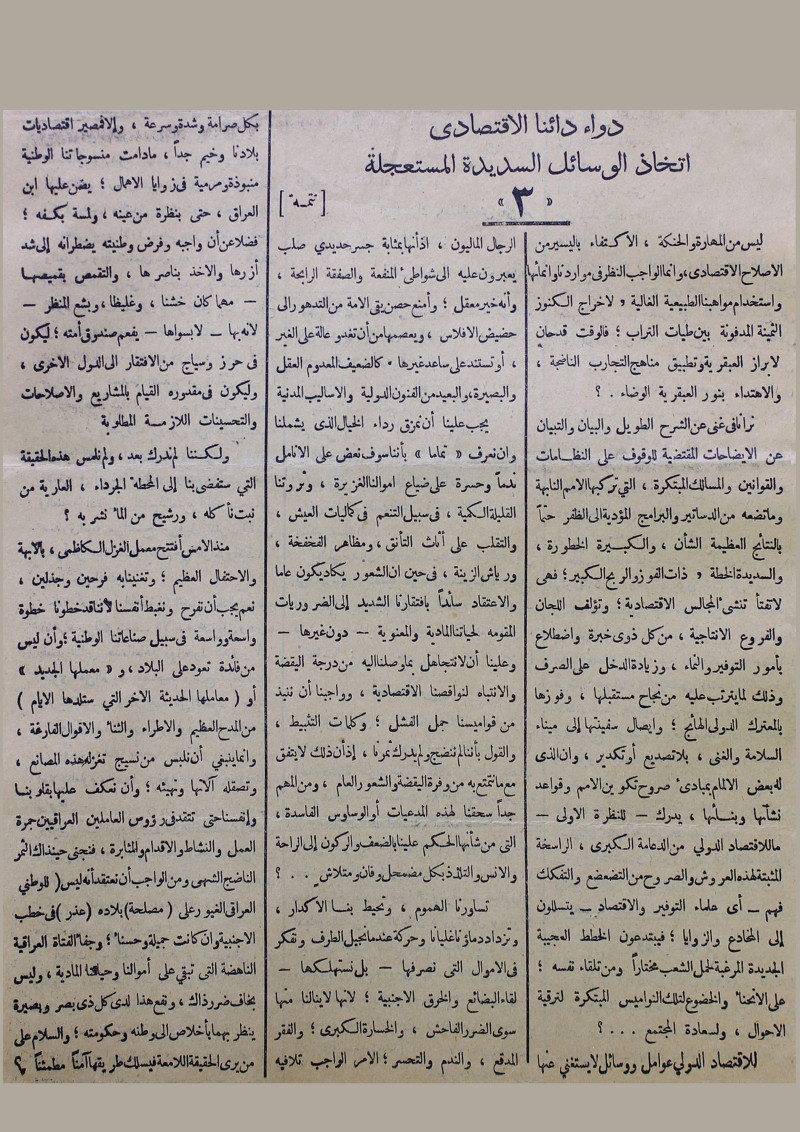 دواء دائنا الاقتصادى
اتخاذ الوسائل السديدة المستعجلة
« ٣ »
[ تتمة ]
ليس من المهارة والحنكة ، الاكتفاء باليسير من
الاصلاح الاقتصادى، وانما الواجب النظر فى مواردنا وانمائها
واستخدام مواهبنا الطبيعية الغالية و لاخراج الكنوز
الثمينة المدفونة بين طيات التراب ؛ فالوقت قدحان
لابراز العبقرية وتطبيق مناهج التجارب الناضجة ،
والاهتداء بنور العبقرية الوضاء . ؟
نرانا فى غنى عن الشرح الطويل والبيان والتبيان
عن الايضاحات المقتضية للوقوف على النظامات
والقوانين والمسالك المبتكرة ، التي تركبها الامم النابهة
وماتضعه من الدساتير والبرامج المؤدية الى الظفر حتماً
بالنتائج العظيمة الشأن ، والكبيرة الخطورة ،
والسديدة الخطة و ذات الفوز والربح الكبير؛ فهى
لاتفتأ تنشىء المجالس الاقتصادية ؛ وتؤلف اللجان
والفروع الانتاجية ، من كل ذوى خبرة واضطلاع
بأمور التوفير والنماء ، وزيادة الدخل على الصرف
وذلك لمايترتب عليه من نجاح مستقبلها ، وفوزها
بالمعترك الدولى الهائج ؛ وايصال سفينتها إلى ميناء
السلامة والغنى ، بلاتصديع أوتكدير ، وان الذى
له بعض الالمام بمبادىء صروح تكوين الامم وقواعد
نشأتها وبنائها ، يدرك — للنظرة الاولى —
ماللاقتصاد الدولي من الدعامة الكبرى ، الراسخة
المثبتة لهذه العروش والصروح من التضعضع والتفكك
فهم — أى علماء التوفير والاقتصاد — يتسللون
إلى المخادع والزوايا ؛ فيبتدعون الخطط العجيبة
الجديدة المرغبة لحمل الشعب مختاراً ومن تلقاء نفسه ؛
على الانحناء والخضوع لتلك النواميس المبتكرة لترقية
الاحوال ، ولسعادة المجتمع . . . ؟
للاقتصاد الدولي عوامل ووسائل لايستغني عنها
الرجال الماليون ، اذ أنها بمثابة جسر حديدي صلب
يعبرون عليه الى شواطىء المنفعة والصفقة الرابحة ،
وأنه خير معقل ؛ وأمنع حصن يقى الامة من التدهور الى
حضيض الافلاس ، ويعصمها من أن تغدو عالة على الغير
، أوتستند على ساعد غيرها ٠ كالضعيف المعدوم العقل
والبصيرة، والبعيد من الفنون الدولية والاساليب المدنية
يجب علينا أن نمزق رداء الخيال الذى يشملنا
وان نعرف « تماما » بأننا سوف نعض على الانامل
ندماً وحسرة على ضياع اموالنا الغزيرة ، وثروتنا
القليلة الكمية ، فى سبيل التنعم فى كماليات العيش ،
والتقلب على أثاث التأنق ، ومظاهر الفخفخة ،
ورياش الزينة ، فى حين ان الشعور يكاد يكون عاما
والاعتقاد سائداً بافتقارنا الشديد إلى الضروريات
المقومه لحياتنا المادية والمعنوية — دون غيرها —
وعلينا أن لانتجاهل بما وصلنا اليه من درجة اليقضة
والانتباه لنواقصنا الاقتصادية ، وواجبنا أن ننبذ
من قواميسنا جمل الفشل ؛ وكلمات التثبيط ،
والقول بأننا لم ننضج ولم يدرك ثمرنا ، إذ أن ذلك لايتفق
مع مانتمتع به من وفرة اليقضة والشعور العام ، ومن المهم
جداً سحقنا لهذه المدعيات أو الوساوس الفاسدة ،
التى من شأنها الحكم علينا بالضعف والركون إلى الراحة
والانس والتلذذ بكل مضمحل وفان ومتلاش . . ؟
تساورنا الهموم ، وتحيط بنا الأكدار ،
وتزداد دماؤنا غليانا وحركة عندما نجيل الطرف ونفكر
فى الاموال التى نصرفها — بل نستهلكها —
لقاء البضائع والخرق الاجنبية ؛ لانها لاينالنا منها
سوى الضرر الفاحش ، والخسارة الكبرى ؛ والفقر
المدقع ، والندم والتحسر ؛ الامر الواجب تلافيه
بكل صرامة وشدة وسرعة ، وإلا فمصير اقتصاديات
بلادنا وخيم جداً ، مادامت منسوجاتنا الوطنية
منبوذة ومرمية فى زوايا الاهمال ؛ يضن عليها ابن
العراق ، حتى بنظرة من عينه ، ولمسة بكفه ؛
فضلا عن أن واجبه وفرض وطنيته يضطرانه إلى شد
أزرها والاخذ بناصرها ، والتقمص بقميصها
— مهما كان خشنا ، وغليظا ، وبشع المنظر —
لانه بها — لابسواها — يفعم صندوق أمته ؛ ليكون
فى حرز وسياج من الافتقار الى الدول الاخرى ،
وليكون فى مقدوره القيام بالمشاريع والاصلاحات
والتحسينات اللازمة المطلوبة
ولكننا لم ندرك بعد ، ولم نلمس هذه الحقيقة
التي ستفضى بنا إلى المحطة الجرداء ، العارية من
نبت نأكله ، ورشيح من الماء نشر به ؟
منذ الامس أفتتح معمل الغزل الكاظمى ، بالابهة
والاحتفال العظيم ؛ وتغنينا به فرحين وجذلين ،
نعم يجب أن نفرح ونغبط أنفسنا لأننا قد خطونا خطوة
واسعة وواسعة فى سبيل صناعاتنا الوطنية ؛ وأن ليس
من فائدة تعود على البلاد ، و « معملها الجديد »
أو ( معاملها الحديثة الاخر التي ستلدها الايام )
من المدح العظيم والاطراء والثناء والاقوال الفارغة ،
وانما ينبغي أن نلبس من نسيج تغزله هذه المصانع ،
وتصقله آلاتها وتهيئه ؛ وأن نعكف عليها بقلوبنا
وإنفسنا حتى تتقد فى رؤوس العاملين العراقيين جمرة
العمل والنشاط والاقدام والمثابرة ، فنجنى حينذاك الثمر
الناضج الشهى ومن الواجب أن نعتقد أنه ليس ( للوطني
العراقى الغيور على ( مصلحة ) بلاده (عذر) فى خطب
الاجنبية وان كانت جميلة وحسناء ؛ وجفاء الفتاة العراقية
الناهضة التى تبقي على أموالنا وحياتنا المادية ، وليس
بخاف ضرر ذاك ، ونفع هذا لدى كل ذى بصر وبصيرة
ينظر بهما بأخلاص الى وطنه وحكومته ؛ والسلام على
من يرى الحقيقة اللامعة فيسلك طريقها آمناً مطمئناً ؟